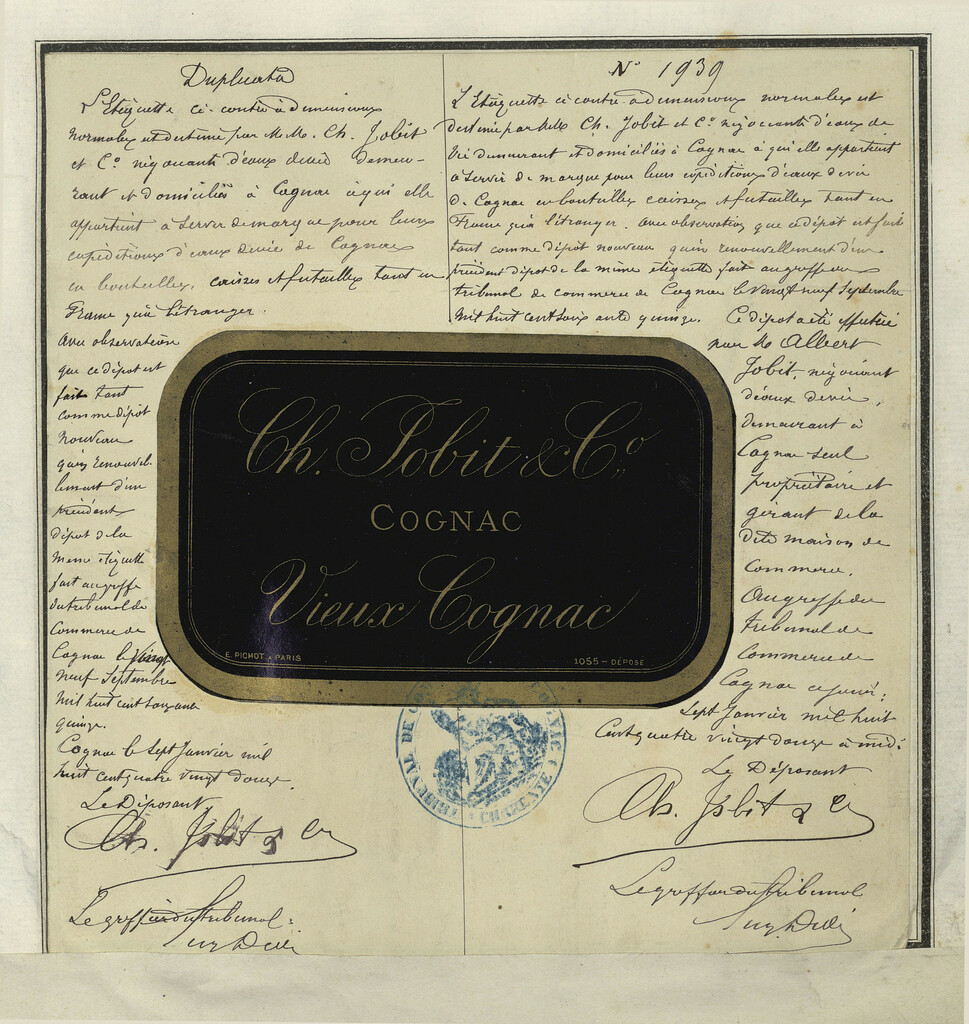 Duplicata
L'Etiquette ci-contre à dimensions
normales est destinée par M.M. Ch. Jobit
et Co négociants d'eaux de vie demeu-
rant et domiciliés à Cognac à qui elle
appartient à servir de marque pour leurs
expéditions d'eaux de vie de Cognac
en bouteilles, caisses et futailles tant en
France qu'à l'étranger.
Avec observation
que ce dépot est
fait tant
comme dépôt
nouveau
qu'en renouvel-
lement d'un
précédent
dépot de la
même étiquette
fait au greffe
du tribunal de
Commerce de
Cognac le vingt
neuf Septembre
mil huit cent soixante
quinze.
Cognac le Sept Janvier mil
huit cent quatre vingt douze.
Le Déposant,
Ch. Jobit & Co
Le greffier du tribunal:
No 1939
L'Etiquette ci contre à dimensions normales est
destinée par M.M. Ch. Jobit et Co négociants d'eaux de
vie demeurant et domiciliés à Cognac à qui elle appartient
à servir de marque pour leurs expéditions d'eaux de vie
de Cognac en bouteilles caisses et futailles tant en
France qu'à l'étranger. Avec observation que ce dépot est fait
tant comme dépôt nouveau qu'en renouvellement d'un
précédent dépot de la même étiquette fait au greffe du
tribunal de commerce de Cognac le vingt neuf Septembre
mil huit cent soixante quinze. Ce dépot a été effectué
par M. Albert
Jobit, négociant
d'eaux de vie,
demeurant à
Cognac seul
propriétaire et
gérant de la
dite maison de
Commerce.
Au greffe du
tribunal de
Commerce de
Cognac ce jour:
Sept Janvier mil huit
cent quatre vingt douze à midi.
Le Déposant
Ch. Jobit & Co
Le greffier du tribunal
Ch. Jobit & Co
COGNAC
Vieux Cognac
E. PICHOT À PARIS
1055 - DÉPOSÉ
TRIBUNAL DE COGNAC CHARENTE